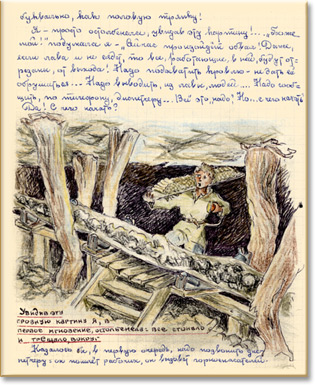 буквально, как половую тряпку!
Я – просто остолбенела, увидав эту картину... „Боже
мой!" подумала я – „Сейчас произойдёт обвал. Даже,
если лава и не сядет, то все, работающие, в ней, будут от-
резаны, от выхода! Надо подхватить кровлю – не дать ей
обрушиться... Надо выводить, из лавы, людей.... Надо сооб-
щить, по телефону, диспетчеру... Всё это, надо! Но... с чего начать
Да! С чего начать?
Увидив эту
грозную картину я, в
первое мгновение, остолбенела: всё стонало
и трещало, вокруг.
Казалось бы, в первую очередь, надо позвонить дис-
петчеру: он пошлёт рабочих, он вызовет горноспасателей.